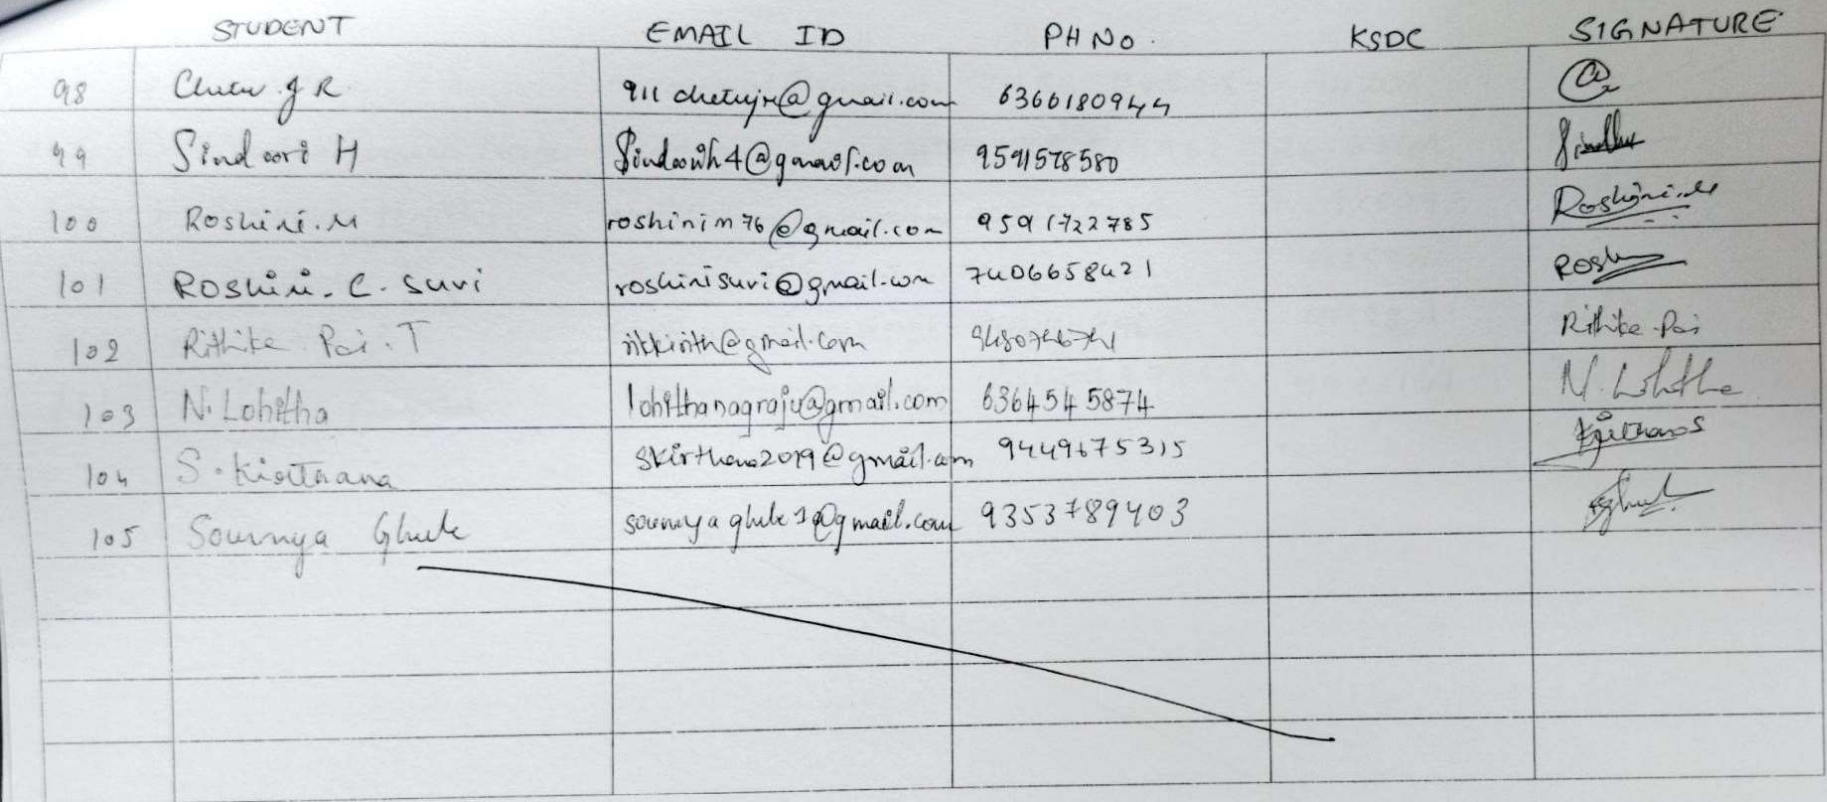 STUDENT EMAIL ID PH NO. KSDC SIGNATURE
98 J R @gmail.com 6366180944
99 Sindoori H @gmail.com 9591578580
100 Roshini.M roshinim76@gmail.com 9591722785 Roshini.M
101 Roshini. C. Suvi roshinisuvi@gmail.com 7406658421
102 Rithika Pai. T @gmail.com Rithika Pai
103 N. Lohitha lohithanagraju@gmail.com 6364545874 N. Lohitha
104 S. Kirthana skirthana2019@gmail.com 9449675315 Kirthana S
105 Soumya @gmail.com 9353789403